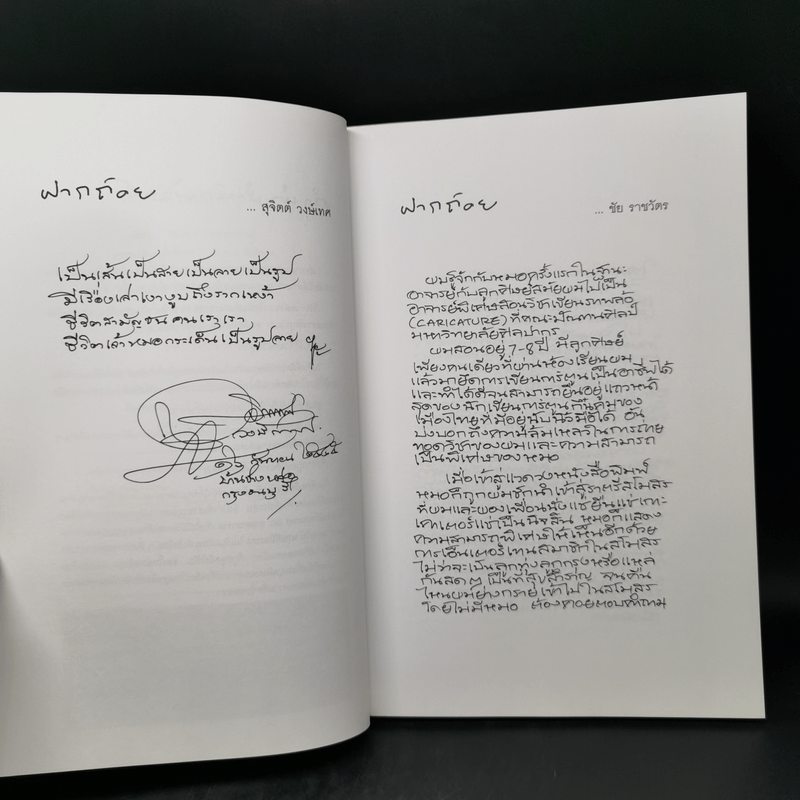 ฝากถ้อย
... สุจิตต์ วงษ์เทศ
เป็นเส้นเป็นสายเป็นลายเป็นรูป
มีเรื่องเล่าเงางูบถึงรากเหง้า
ชีวิตสามัญชนคนเราเรา
ชีวิตเล่าหมอกระเด็นเป็นรูปลาย
กันยายน ๒๕๔๕
บ้านช่างหล่อ
กรุงธนบุรี
ฝากถ้อย
... ชัย ราชวัตร
ผมรู้จักกับหมอครั้งแรกในฐานะ
อาจารย์กับลูกศิษย์สมัยผมไปเป็น
อาจารย์พิเศษสอนวิชาเขียนภาพล้อ
(CARICATURE) ที่คณะมัณฑนศิลป์
มหาวิทยาลัยศิลปากร
ผมสอนอยู่ 7-8 ปี มีลูกศิษย์
เพียงคนเดียวที่ผ่านห้องเรียนผม
แล้วมายึดการเขียนการ์ตูนเป็นอาชีพได้
และทำได้ดีจนสามารถยืนอยู่แถวหน้า
สุดของนักเขียนการ์ตูนกึ๋นคมของ
เมืองไทยที่มีอยู่นับนิ้วมือได้ อัน
บ่งบอกถึงความล้มเหลวในการถ่าย
ทอดวิชาของผมและความสามารถ
เป็นพิเศษของหมอ
เมื่อเข้าสู่แวดวงหนังสือพิมพ์
หมอก็ถูกผมชักนำเข้าสู่ราตรีสโมสร
ที่ผมและผองเพื่อนนั่งแช่ยืนแช่เกาะ
เคาเตอร์แช่เป็นนิจสิน หมอก็แสดง
ความสามารถพิเศษให้เห็นอีกด้วย
การเอ็นเตอร์เทนสมาชิกในสโมสร
ไม่ว่าจะเป็นลูกทุ่งลูกกรุงหรือแหล่
กันสดๆ เป็นที่สุขสำราญ จนคืน
ไหนผมย่างกรายเข้าไปในสโมสร
โดยไม่มีหมอ ต้องคอยตอบคำถาม